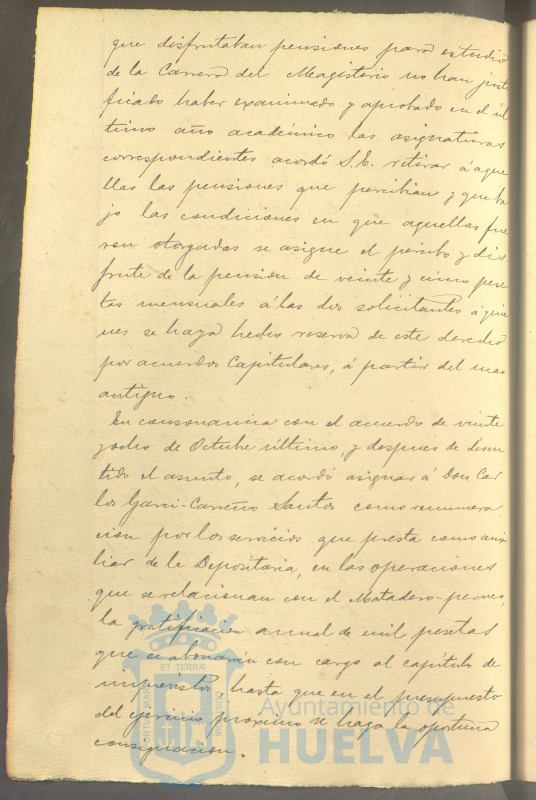 que disfrutaban pensiones para estudio
de la Carrera del Magisterio no han justi
ficado haber examinado y aprobado en el úl
timo año académico las asignaturas
correspondientes acordó S.E. retirar á aque
llas las pensiones que percibian y que ba
jo las condiciones en que aquellas fue
ron otorgadas se asigne el percibo y dis
frute de la pension de veinte y cinco pese
tas mensuales á las dos solicitantes á quie
nes se haya hecho reserva de este derecho
por acuerdos Capitulares, á partir del mas
antiguo.
En consonancia con el acuerdo de veinte
y ocho de Octubre último, y despues de discu
tido el asunto, se acordó asignar á Don Car
los Garci-Carreño Santos como remunera
cion por los servicios que presta como auxi
liar de la Depositaria, en las operaciones
que se relacionan con el Matadero-permo,
la gratificacion annal de mil pesetas
que se abonarán con cargo al capítulo de
imprevistos hasta que en el presupuesto
del ejercicio proximo se haga la oportuna
consignacion.
ET TERRÆ
Ayuntamiento de
HUELVA